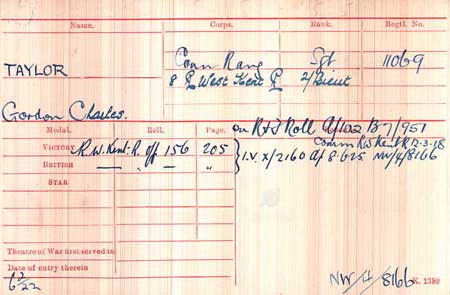 Name. Corps. Rank. Regtl. No.
TAYLOR Conn Rang Sgt 11069
8 R West Kent R 2/Lieut
Gordon Charles.
Medal. Roll. Page. Remarks.
on R+F Roll A/102 B7/951
Comm RW Kent R 12-3-18
VICTORY R.W.Kent.R. Off 156 205
BRITISH — " — "
I.V. X/2160 NW/4/8166
STAR
Theatre of War first served in
Date of entry therein
NW/4/8166 K. 1380